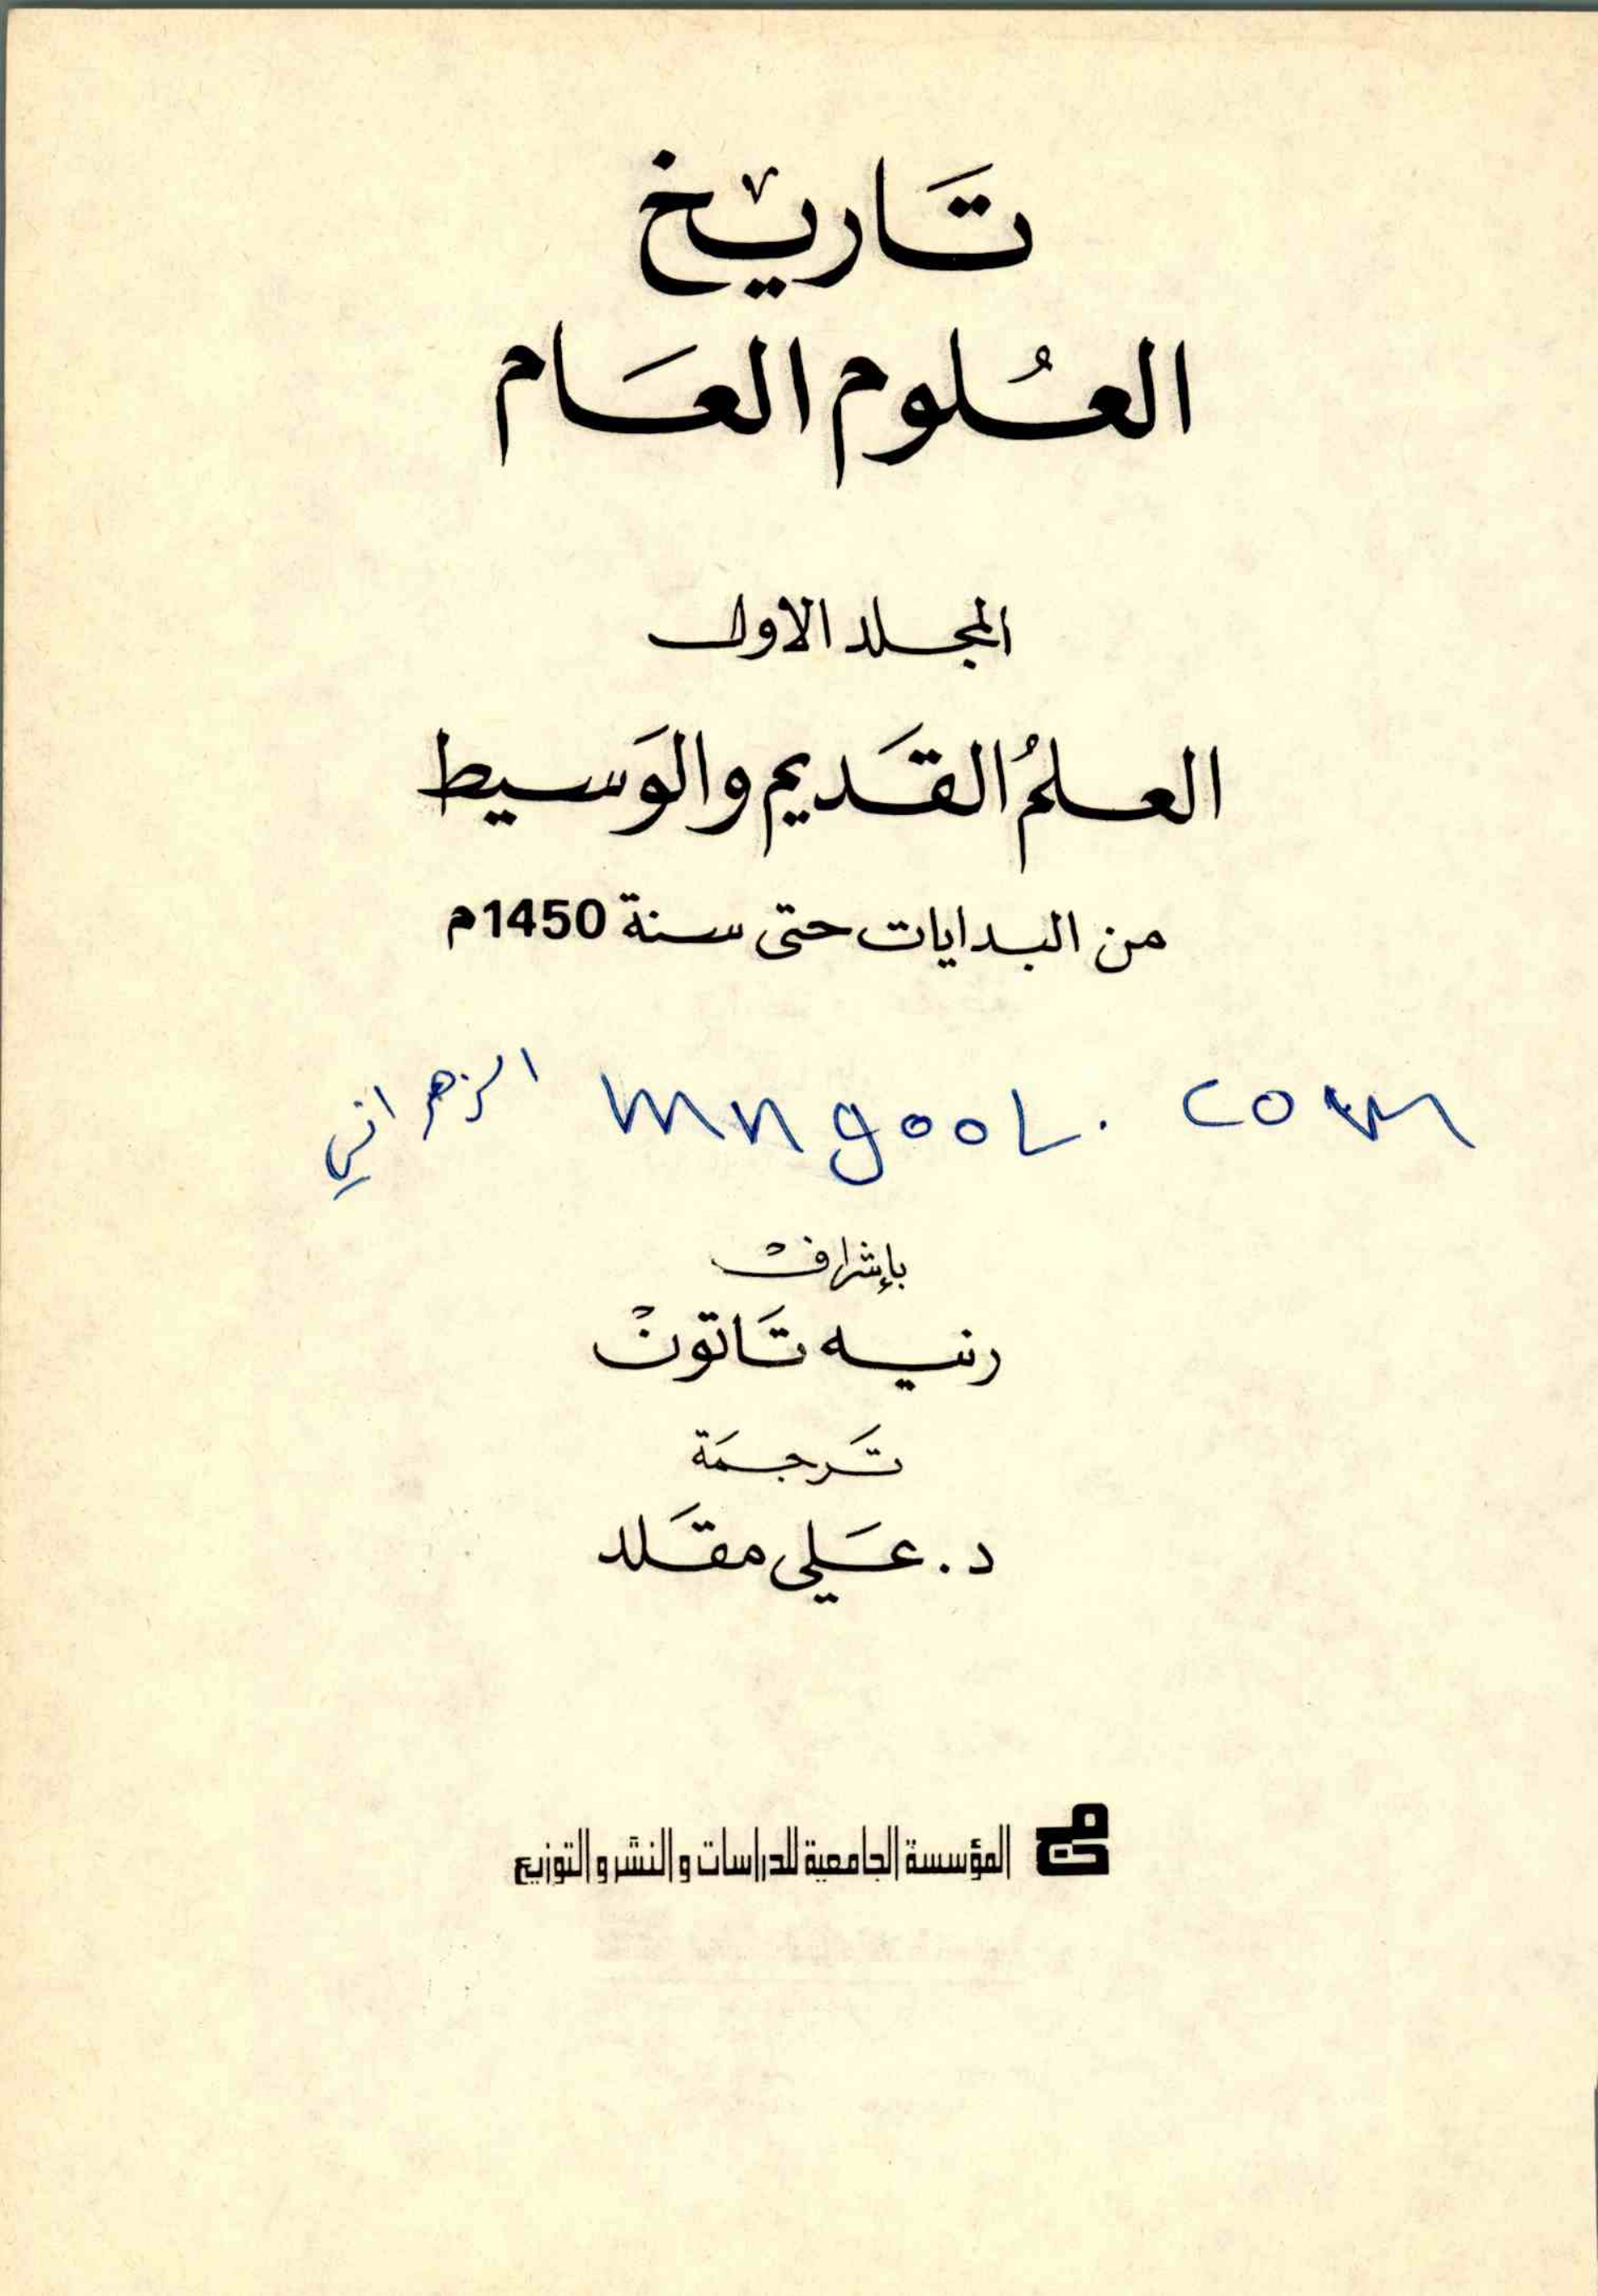 تَاريخ
العُلوم العَام
المجلد الاول
العلمُ القَديم والوَسيط
من البدايات حتى سنة 1450م
mngool.com الزهراني
بإشراف
رنيه تَاتون
تَرجمَة
د. عَلي مقَلد
المؤسسة الجامعية للدراسات والنشر والتوزيع